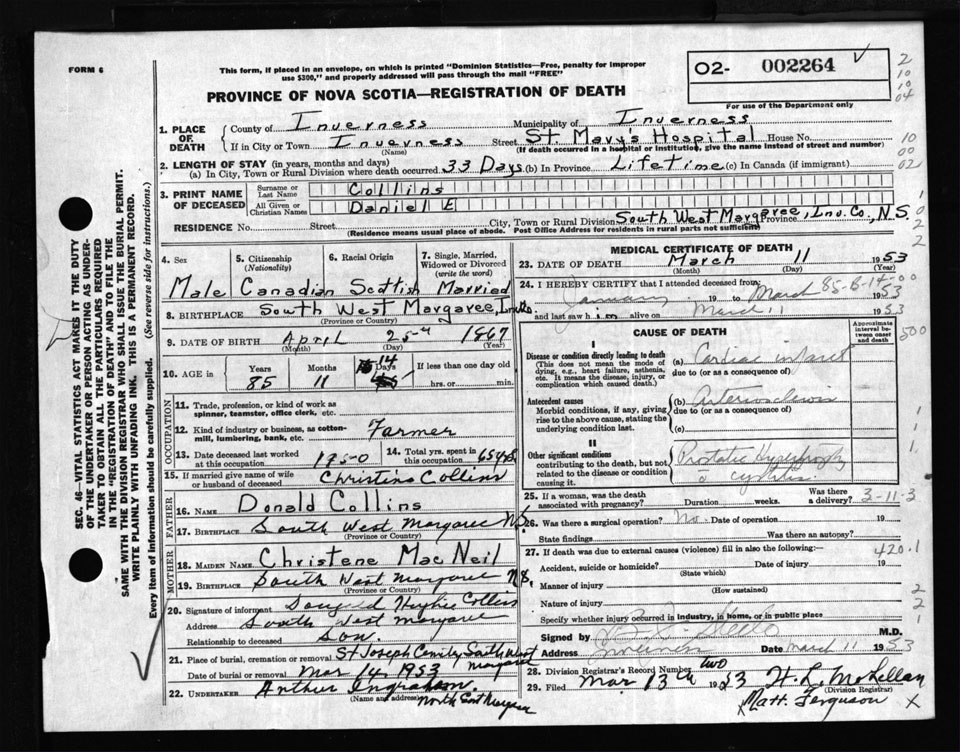 FORM 6
This form, if placed in an envelope, on which is printed "Dominion Statistics—Free, penalty for improper
use $300," and properly addressed will pass through the mail "FREE"
O2- 002264
For use of the Department only
2
10
10
04
PROVINCE OF NOVA SCOTIA—REGISTRATION OF DEATH
1. PLACE OF DEATH
County of Inverness Municipality of Inverness
If in City or Town Inverness Street St. Mary's Hospital House No.
(Name) (If death occurred in a hospital or institution, give the name instead of street and number)
10
00
02
2. LENGTH OF STAY (in years, months and days)
(a) In City, Town or Rural Division where death occurred 33 Days (b) In Province Lifetime (c) In Canada (if immigrant)
3. PRINT NAME OF DECEASED
Surname or Last Name Collins
All Given or Christian Names Daniel E
1
0
2
2
RESIDENCE No. Street City, Town or Rural Division South West Margaree, Inv. Co., N.S. Province
(Residence means usual place of abode. Post Office Address for residents in rural parts not sufficient)
4. Sex 5. Citizenship (Nationality) 6. Racial Origin 7. Single, Married, Widowed or Divorced (write the word)
Male Canadian Scottish Married
8. BIRTHPLACE South West Margaree,
(Province or Country)
9. DATE OF BIRTH April 25 1867
(Month) (Day) (Year)
10. AGE in Years Months Days If less than one day old
85 11 14 hrs. or min.
OCCUPATION
11. Trade, profession, or kind of work as
spinner, teamster, office clerk, etc.
12. Kind of industry or business, as cotton-
mill, lumbering, bank, etc. Farmer
13. Date deceased last worked
at this occupation 1950
14. Total yrs. spent in
this occupation 65
15. If married give name of wife
or husband of deceased Christina Collins
FATHER
16. NAME Donald Collins
17. BIRTHPLACE South West Margaree N.S.
(Province or Country)
MOTHER
18. MAIDEN NAME Christene MacNeil
19. BIRTHPLACE South West Margaree N.S.
(Province or Country)
20. Signature of informant Hughie Collins
Address South West Margaree
Relationship to deceased Son.
21. Place of burial, cremation or removal St Joseph South West Margaree
Date of burial or removal Mar 14, 1953
22. UNDERTAKER Arthur Ingraham
(Name and address) North East Margaree
MEDICAL CERTIFICATE OF DEATH
23. DATE OF DEATH March 11 1953
(Month) (Day) (Year)
24. I HEREBY CERTIFY that I attended deceased from
January 19 to March 1953
and last saw him alive on March 11 1953
CAUSE OF DEATH
Approximate interval between onset and death
500
I
Disease or condition directly leading to death
(This does not mean the mode of
dying, e.g., heart failure, asthenia,
etc. It means the disease, injury, or
complication which caused death.)
(a) Cardiac infarct
due to (or as a consequence of)
Antecedent causes
Morbid conditions, if any, giving
rise to the above cause, stating the
underlying condition last.
(b) Arteriosclerosis
due to (or as a consequence of)
(c)
1
1
1
II
Other significant conditions
contributing to the death, but not
related to the disease or condition
causing it.
Prostatic Hypertrophy
c̄ cystitis
25. If a woman, was the death
associated with pregnancy? Duration weeks. Was there a delivery?
3-11-3
26. Was there a surgical operation? No. Date of operation 19
State findings Was there an autopsy?
27. If death was due to external causes (violence) fill in also the following:—
420.1
Accident, suicide or homicide? Date of injury 19
(State which)
Manner of injury
(How sustained)
Nature of injury
2
2
1
Specify whether injury occurred in industry, in home, or in public place
Signed by M.D.
Address Inverness Date March 11 1953
28. Division Registrar's Record Number two
29. Filed Mar 13th 1953 H. L. McLellan
(Division Registrar)
Matt. Ferguson
X
SEC. 46—VITAL STATISTICS ACT MAKES IT THE DUTY
OF THE UNDERTAKER OR PERSON ACTING AS UNDER-
TAKER TO OBTAIN ALL THE PARTICULARS REQUIRED
IN THE "REGISTRATION OF DEATH" AND TO FILE THE
SAME WITH THE DIVISION REGISTRAR WHO SHALL ISSUE THE BURIAL PERMIT.
WRITE PLAINLY WITH UNFADING INK. THIS IS A PERMANENT RECORD.
Every item of information should be carefully supplied. (See reverse side for instructions.)